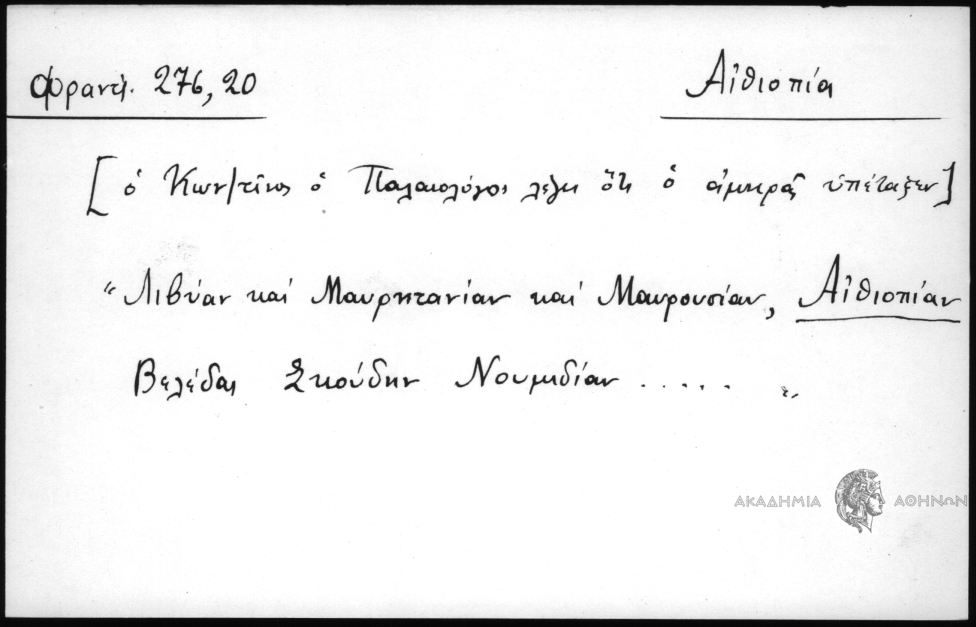 Φραντζ. 276, 20
Αἰθιοπία
[ὁ Κων/τῖνος ὁ Παλαιολόγος λέγει ὅτι ὁ ἀμηρᾶς ὑπέταξεν]
"Λιβύαν καί Μαυρητανίαν καί Μαυρουσίαν, Αἰθιοπίαν
Βελέδας Σκούδην Νουμιδίαν ..... "
ΑΚΑΔΗΜΙΑ ΑΘΗΝΩΝ